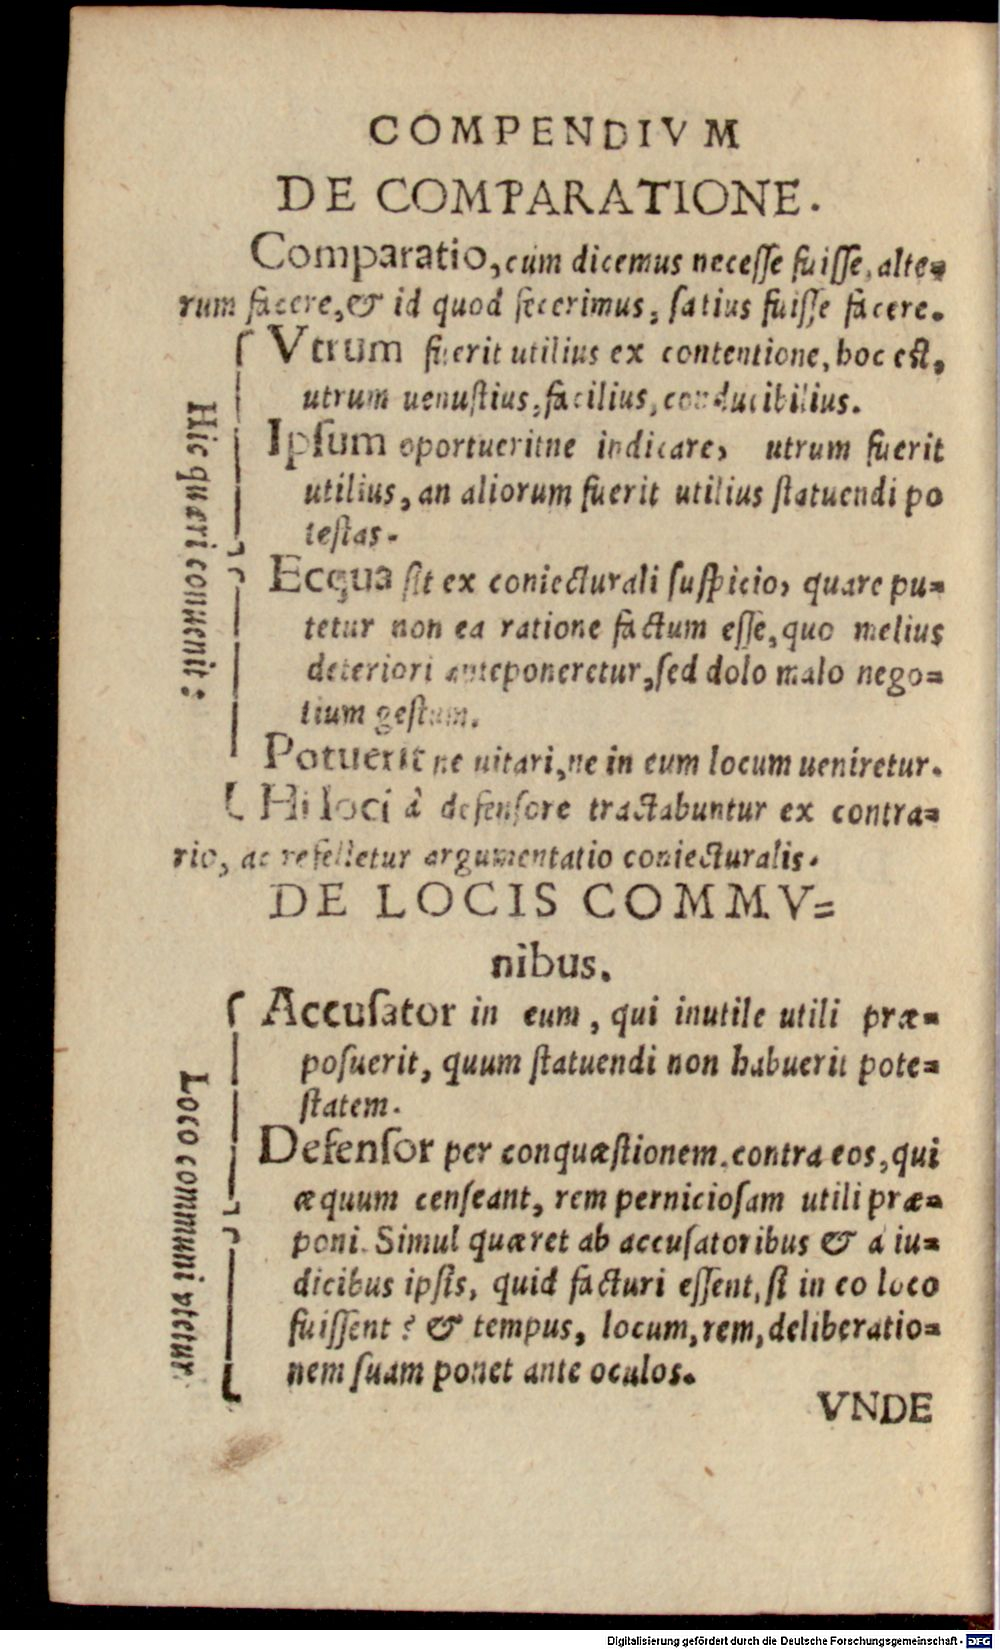 COMPENDIVM
DE COMPARATIONE.
Comparatio, cum dicemus necesse fuisse, alte=
rum facere, & id quod fecerimus, satius fuisse facere.
Hic quæri conuenit:
Vtrum fuerit utilius ex contentione, hoc est,
utrum uenustius, facilius, conducibilius.
Ipsum oportueritne indicare, utrum fuerit
utilius, an aliorum fuerit utilius statuendi po
testas.
Ecqua sit ex coniecturali suspicio, quare pu=
tetur non ea ratione factum esse, quo melius
deteriori anteponeretur, sed dolo malo nego=
tium gestum.
Potuerit ne uitari, ne in eum locum ueniretur.
Hi loci à defensore tractabuntur ex contra=
rio, ac refelletur argumentatio coniecturalis.
DE LOCIS COMMV=
nibus.
Loco communi vtetur
Accusator in eum, qui inutile utili præ=
posuerit, quum statuendi non habuerit pote=
statem.
Defensor per conquæstionem, contra eos, qui
æquum censeant, rem perniciosam utili præ=
poni. Simul quæret ab accusatoribus & a iu=
dicibus ipsis, quid facturi essent, si in eo loco
fuissent? & tempus, locum, rem, deliberatio=
nem suam ponet ante oculos.
VNDE
Digitalisierung gefördert durch die Deutsche Forschungsgemeinschaft - DFG